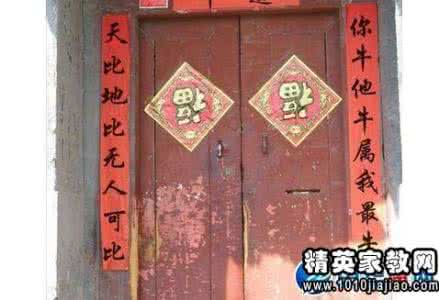 你牛他牛属我最牛
天比地比无人可比
福
福
精英家教网
www.1010jiajiao.com